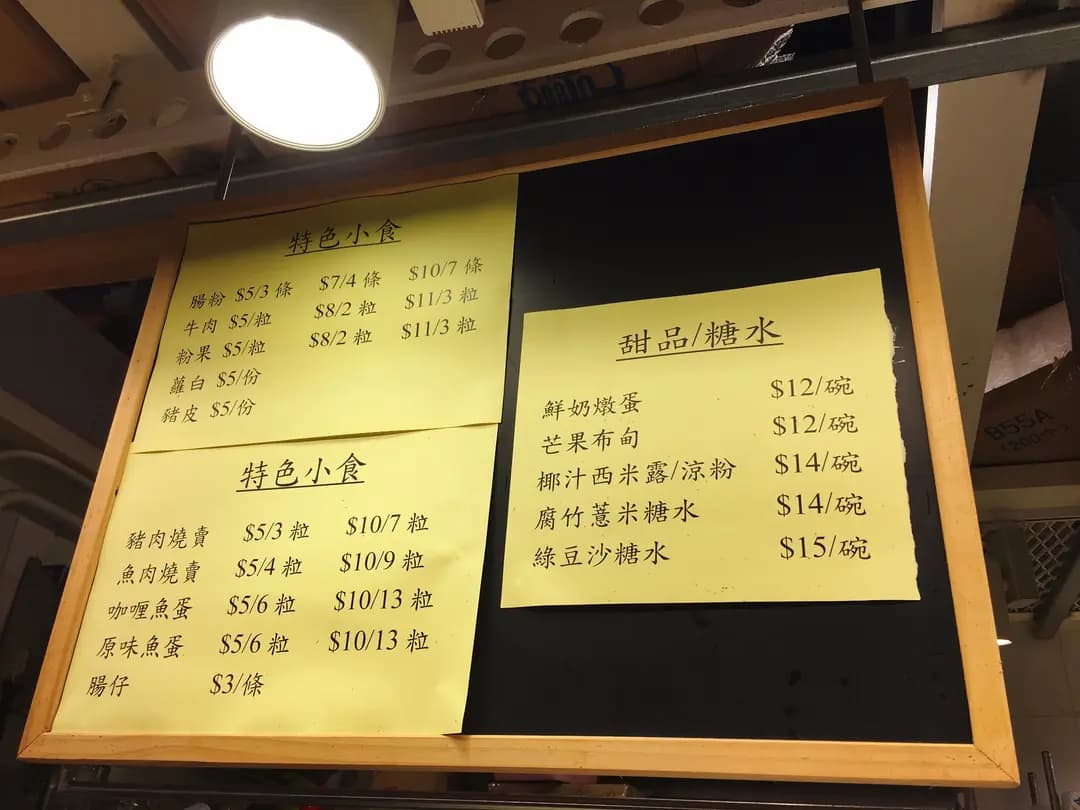 特色小食
腸粉 $5/3 條 $7/4 條 $10/7 條
牛肉 $5/粒 $8/2 粒 $11/3 粒
粉果 $5/粒 $8/2 粒 $11/3 粒
蘿白 $5/份
豬皮 $5/份
特色小食
豬肉燒賣 $5/3 粒 $10/7 粒
魚肉燒賣 $5/4 粒 $10/9 粒
咖喱魚蛋 $5/6 粒 $10/13 粒
原味魚蛋 $5/6 粒 $10/13 粒
腸仔 $3/條
甜品/糖水
鮮奶燉蛋 $12/碗
芒果布甸 $12/碗
椰汁西米露/涼粉 $14/碗
腐竹薏米糖水 $14/碗
綠豆沙糖水 $15/碗
B55A